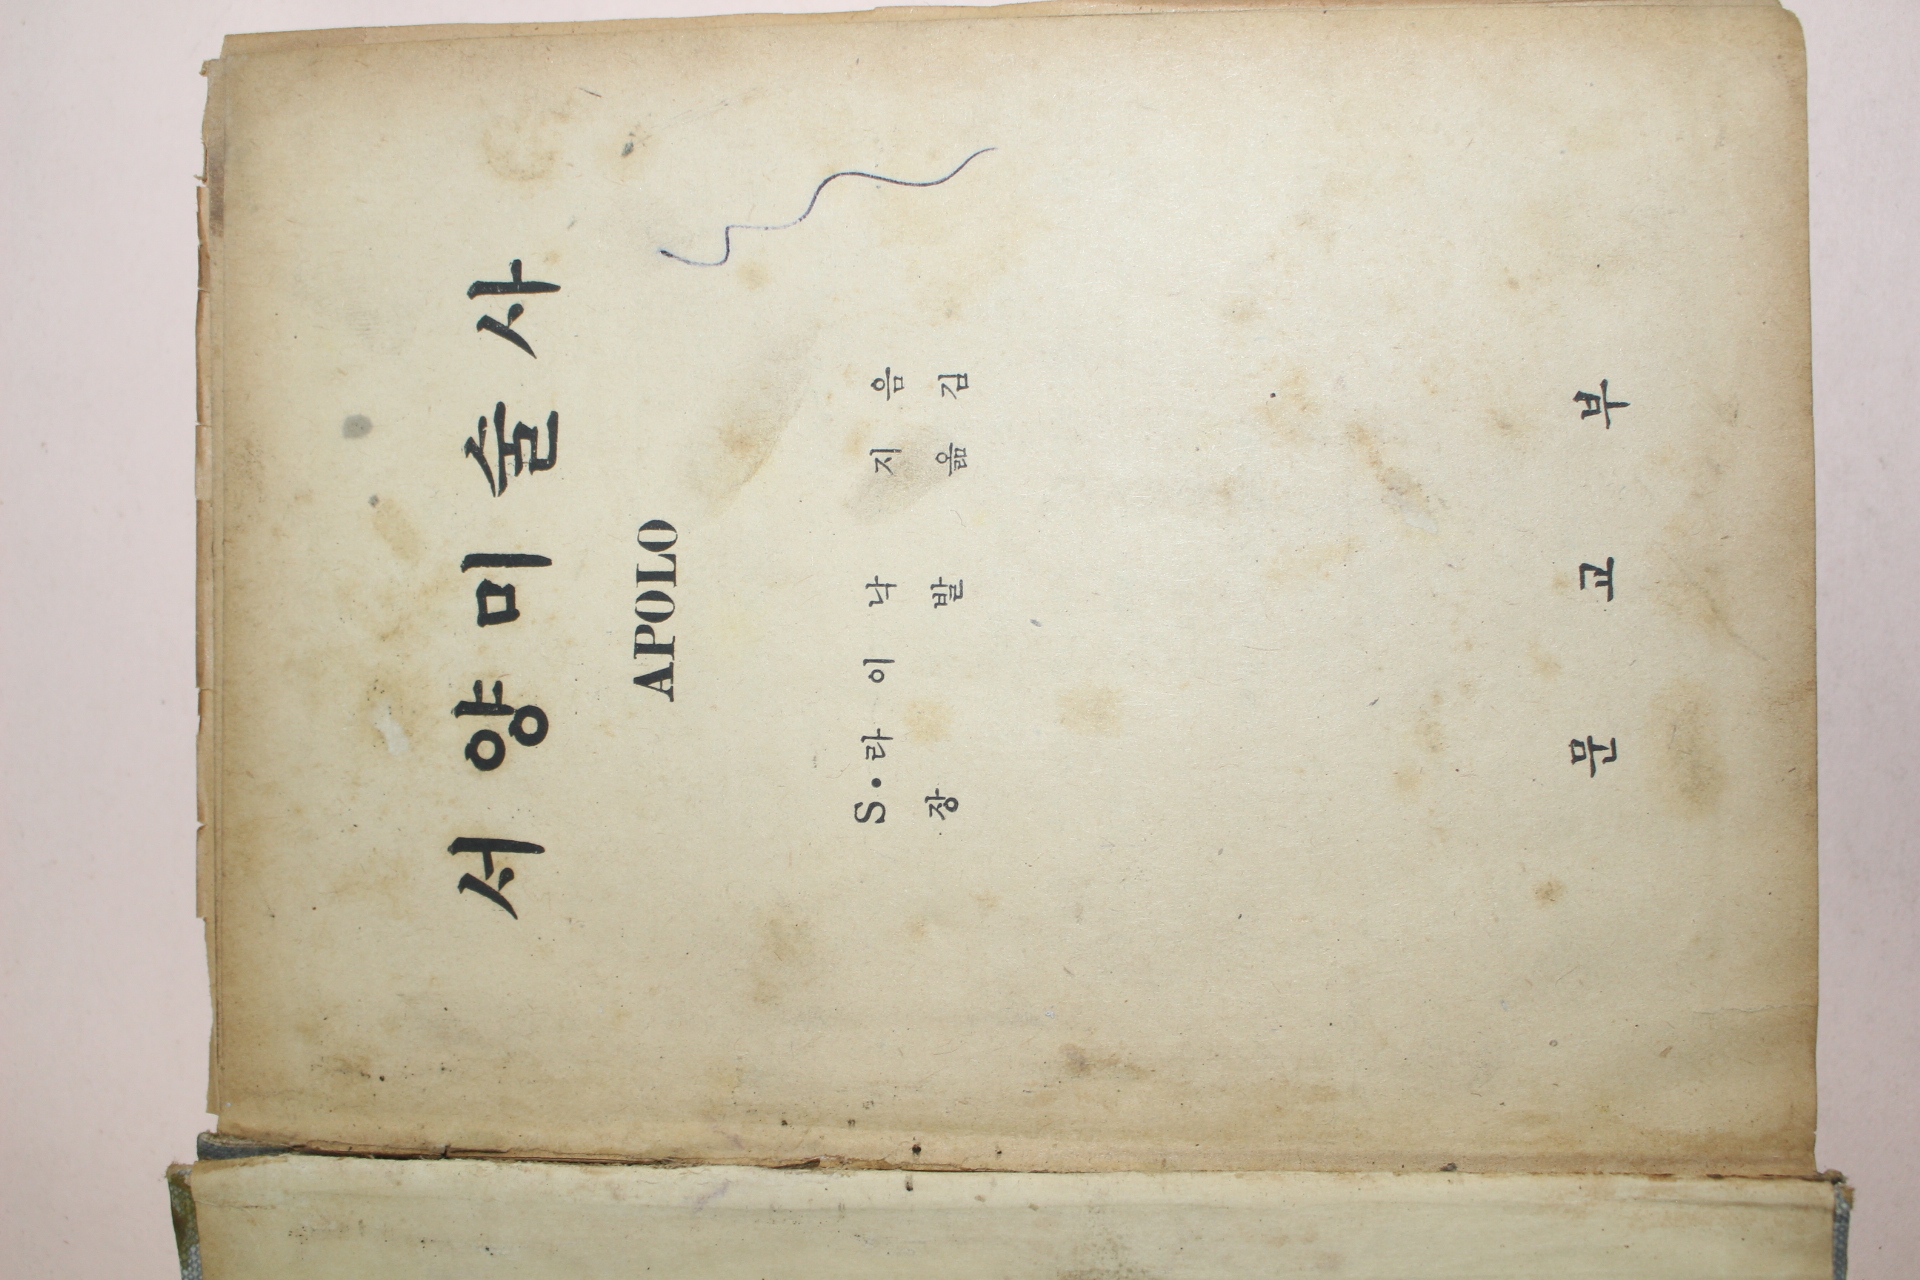 서양미술사
APOLO
S·라이낙 지음
장 발 옮김
문교부